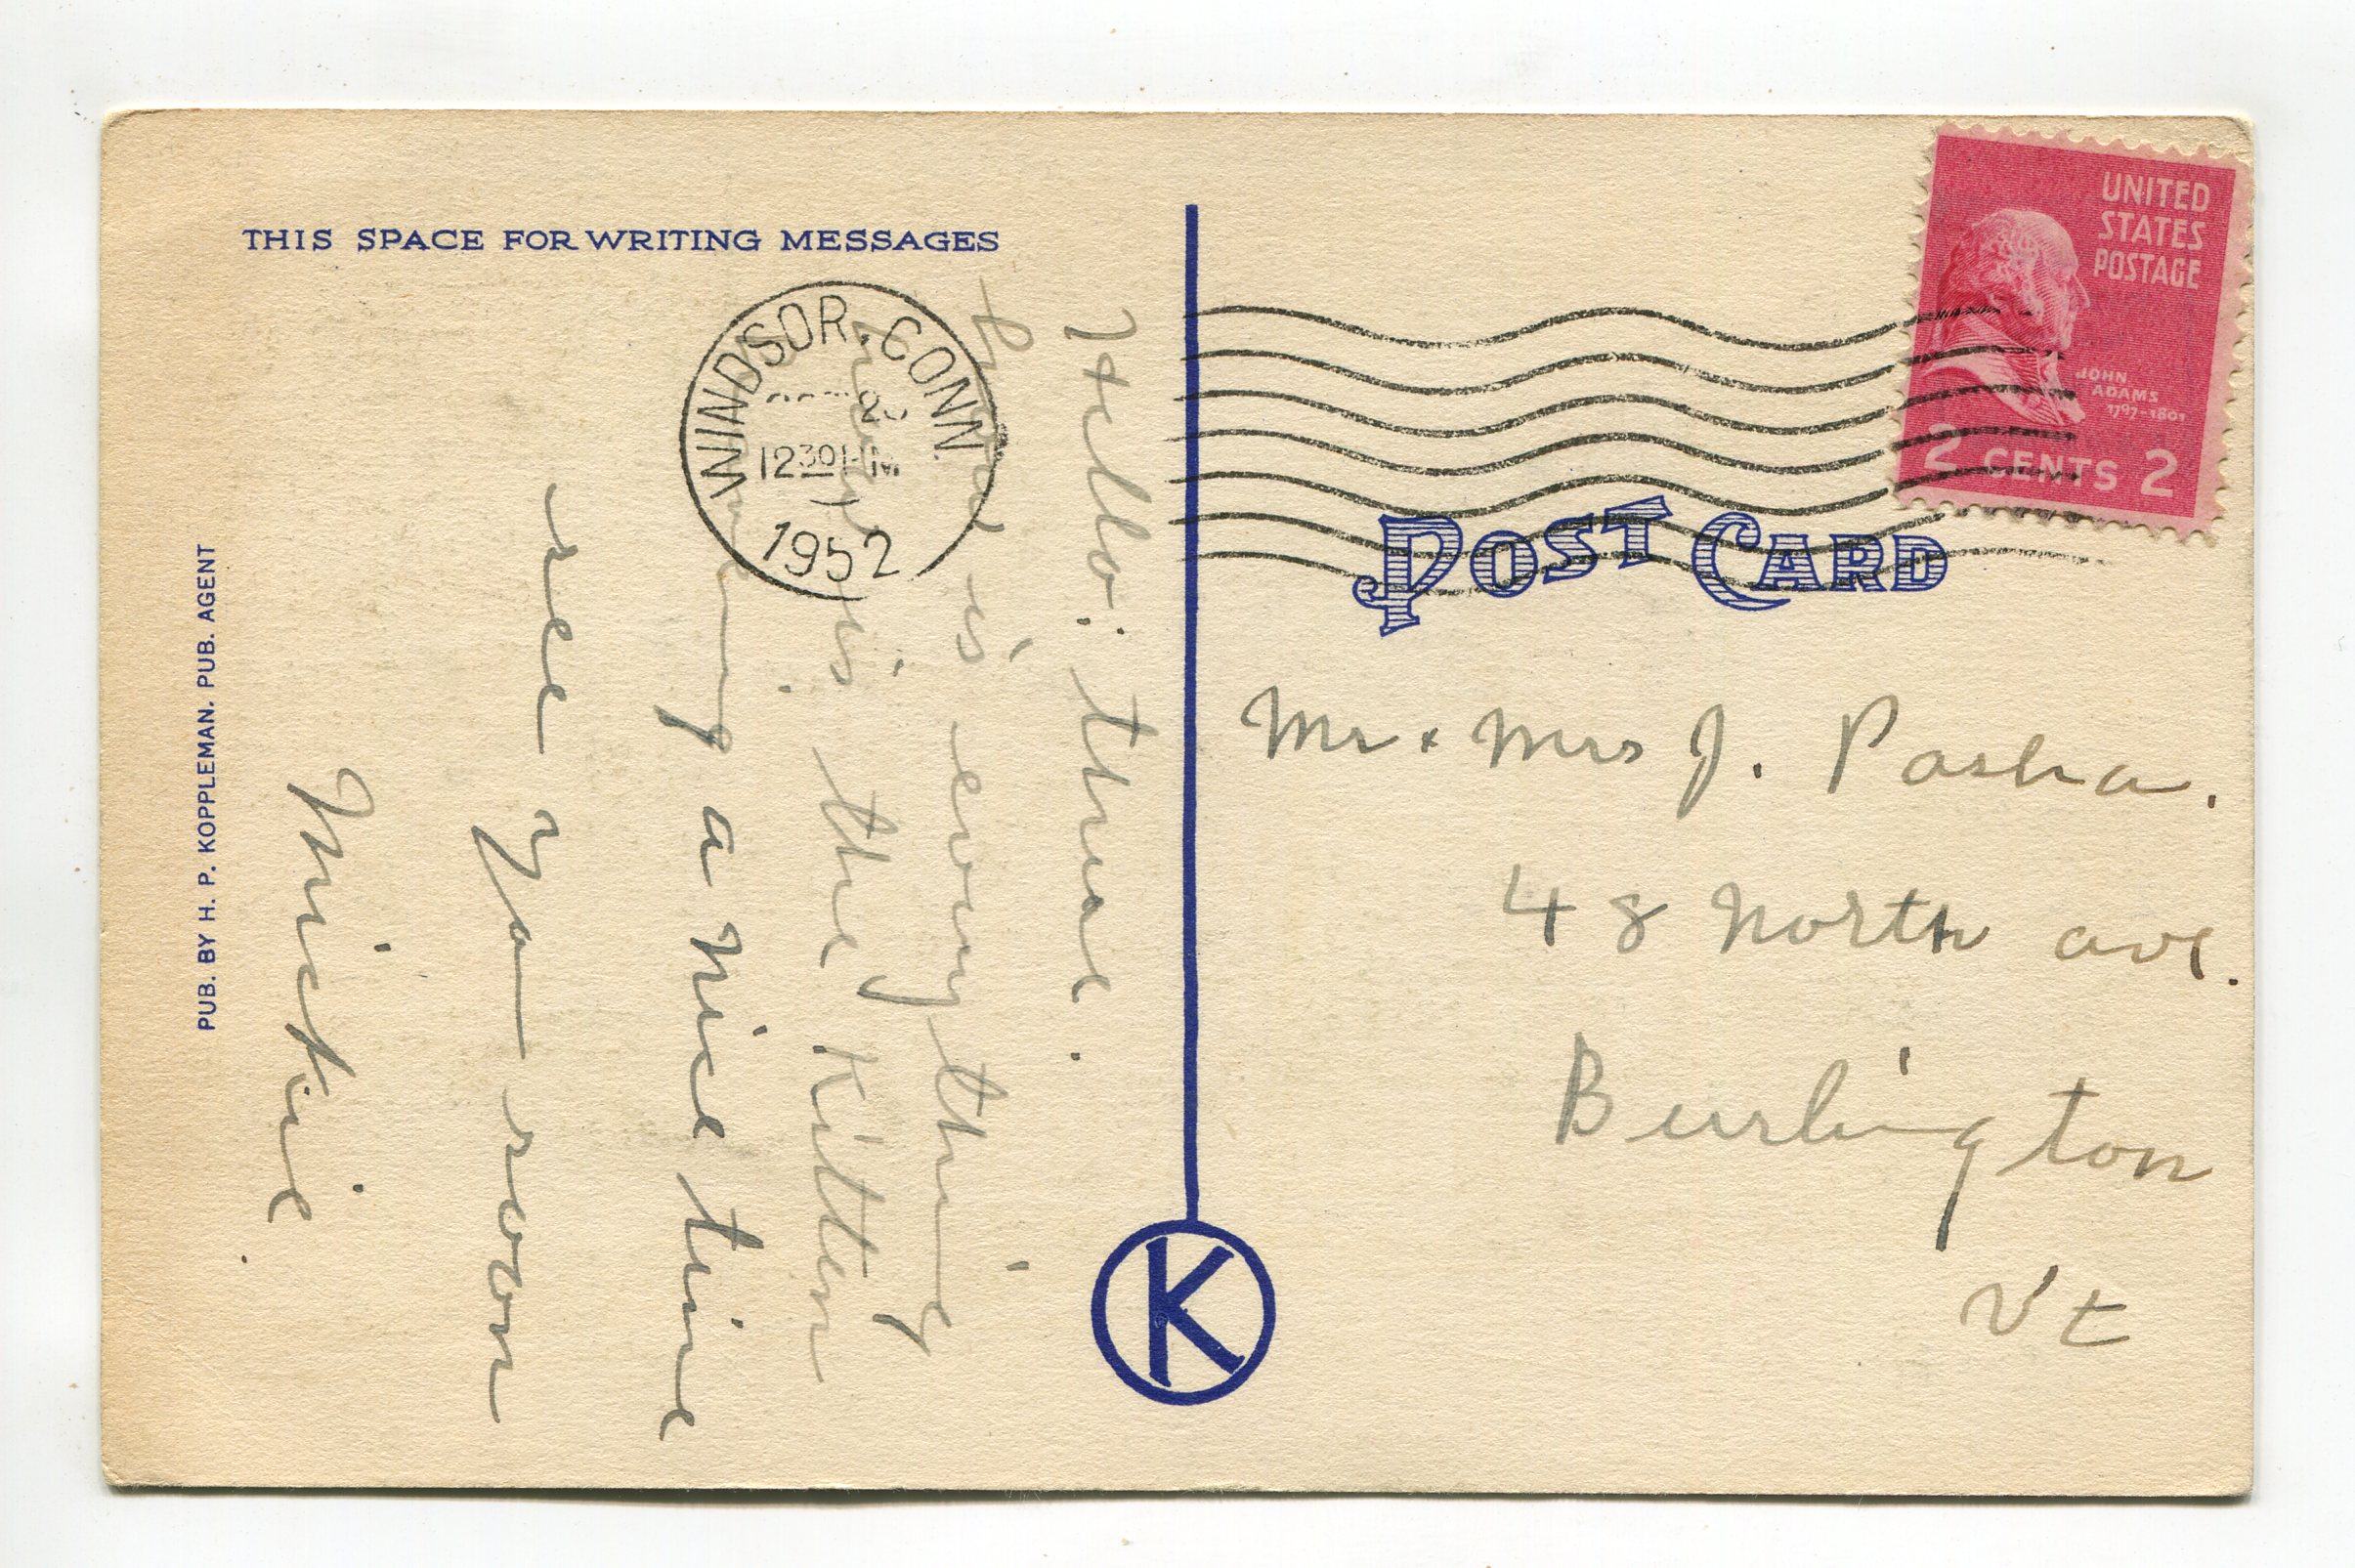 THIS SPACE FOR WRITING MESSAGES
WINDSOR, CONN.
1230 PM
1952
Hello: there.
How is everything
how is the Kitten
having a nice time
see you soon
Mickie
PUB. BY H. P. KOPPLEMAN. PUB. AGENT
K
UNITED
STATES
POSTAGE
JOHN
ADAMS
1797-1801
2 CENTS 2
POST CARD
Mr. & Mrs J. Pasha.
48 North ave.
Burlington
Vt